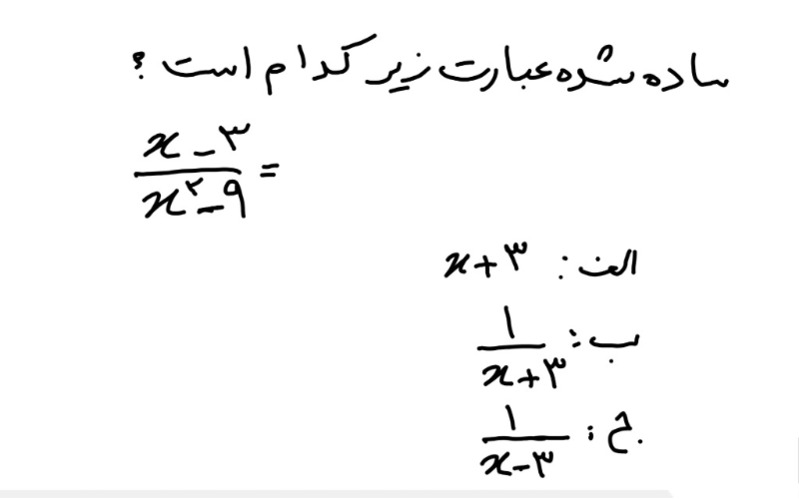 ساده شده عبارت زیر کدام است ؟
x - ۳
x² - ۹ =
الف : x + ۳
ب : ۱
x + ۳
ج : ۱
x - ۳